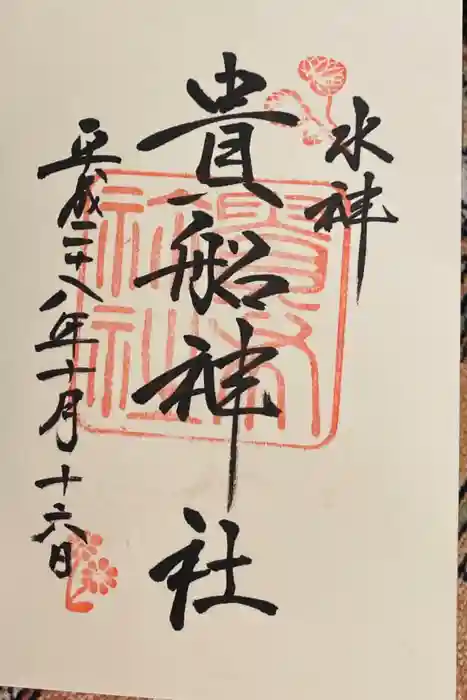 水神
貴船神社
平成二十八年十月十六日